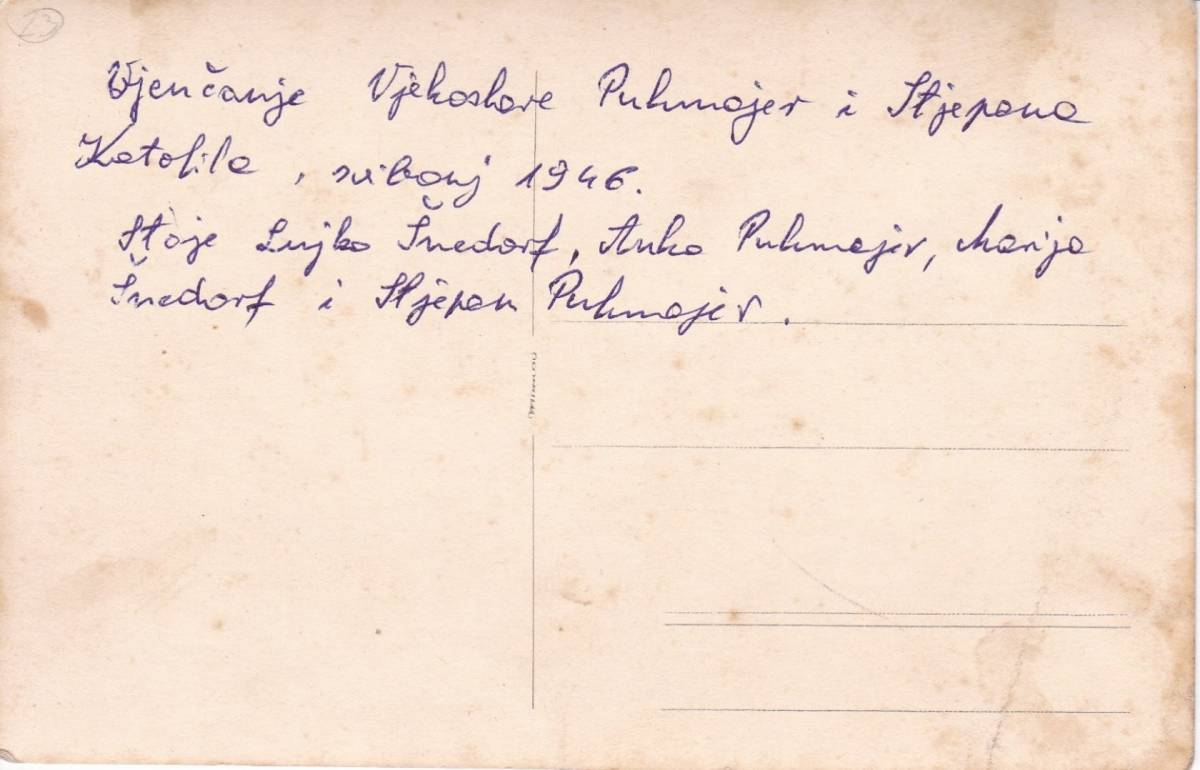 23
Vjenčanje Vjekoslave Puhmajer i Stjepana
Katofila, svibanj 1946.
Stoje Lujko Šnedorf, Anka Puhmajer, Marija
Šnedorf i Stjepan Puhmajer.